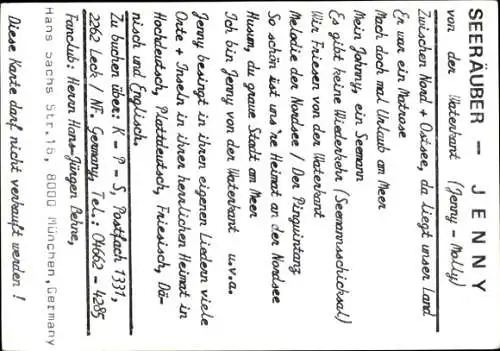 SEERÄUBER - JENNY
von der Waterkant (Jenny - Molly)
Zwischen Nord + Ostsee, da liegt unser Land
Er war ein Matrose
Nach doch mal Urlaub am Meer
Mein Johnny, ein Seemann
Es gibt keine Wiederkehr (Seemannsschicksal)
Wir Friesen von der Waterkant
Melodie der Nordsee / Der Pinguintanz
So schön ist uns're Heimat an der Nordsee
Husum, du graue Stadt am Meer
Ich bin Jenny von der Waterkant u.v.a.
Jenny besingt in ihren eigenen Liedern viele
Orte + Inseln in ihrer herrlichen Heimat in
Hochdeutsch, Plattdeutsch, Friesisch, Dä-
nisch und Englisch.
Zu buchen über: K - P - S, Postfach 1331,
2262 Leck / NF. Germany, Tel.: 04662 - 4285
Fanclub: Herrn Hans-Jürgen Dehne,
Hans Sachs Str.16, 8000 München, Germany
Diese Karte darf nicht verkauft werden!